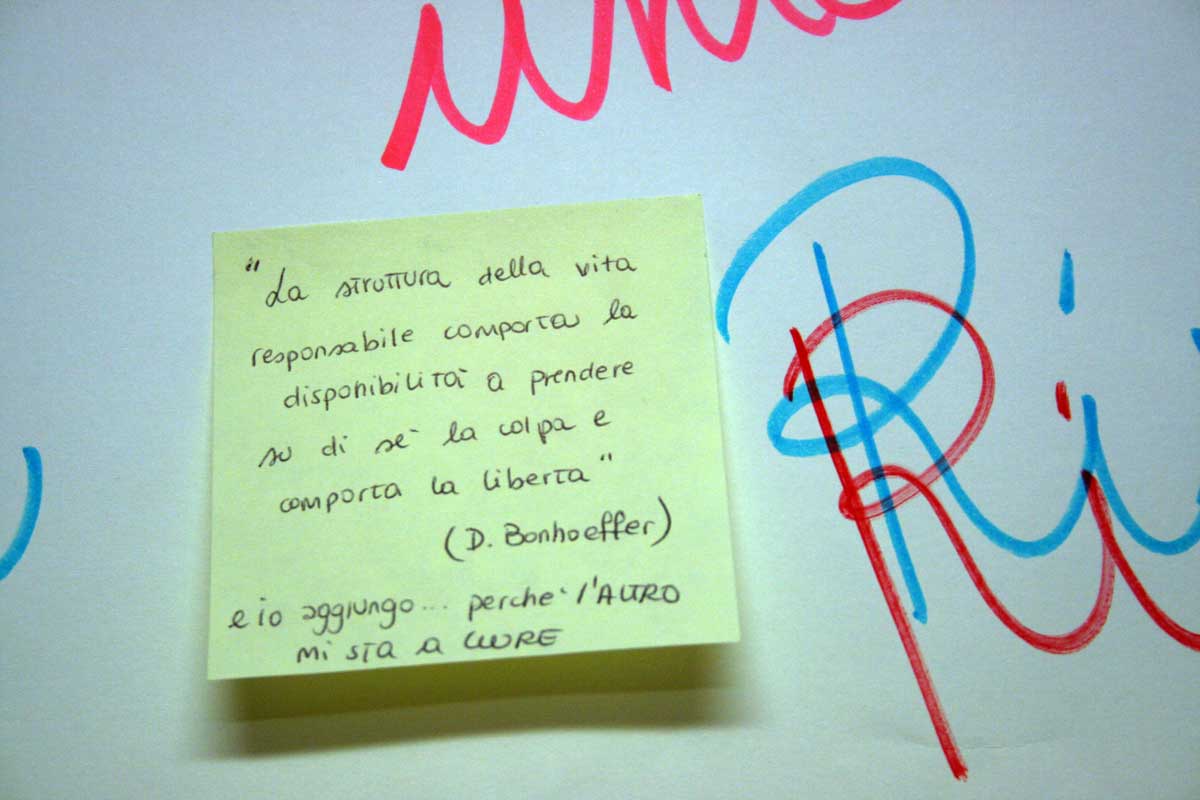 "La struttura della vita
responsabile comporta la
disponibilità a prendere
su di sè la colpa e
comporta la libertà"
(D. Bonhoeffer)
e io aggiungo... perchè l'ALTRO
mi sta a CUORE